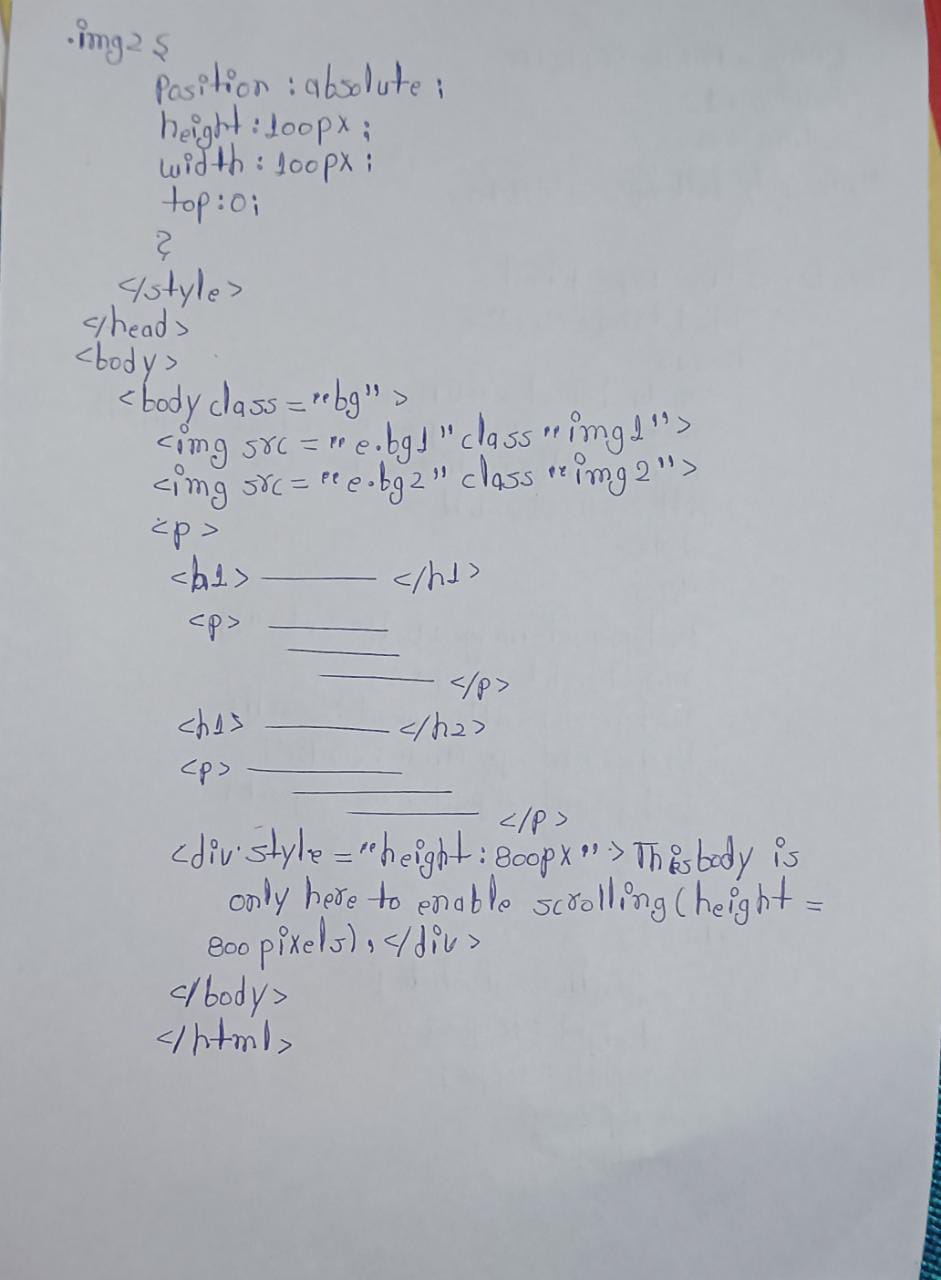 .img2 {
Position : absolute ;
height : 100px ;
width : 100px ;
top : 0 ;
}
</style>
</head>
<body>
<body class = "bg" >
<img src = "e.bg1" class "img1">
<img src = "e.bg2" class "img2">
<p>
<h1> ——— </h1>
<p> ———
———
——— </p>
<h1> ——— </h2>
<p> ———
———
——— </p>
<div style = "height : 800px" > This body is
only here to enable scrolling (height =
800 pixels), </div>
</body>
</html>